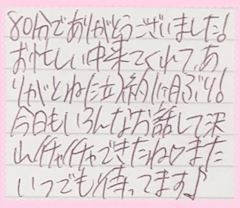 80分でありがとうございました!
お忙しい中来てくれてあ
りがとねた 約1ヶ月ぶり!
今日もいろんなお話して沢
山イチャイチャできたね♡また
いつでも待ってます♪